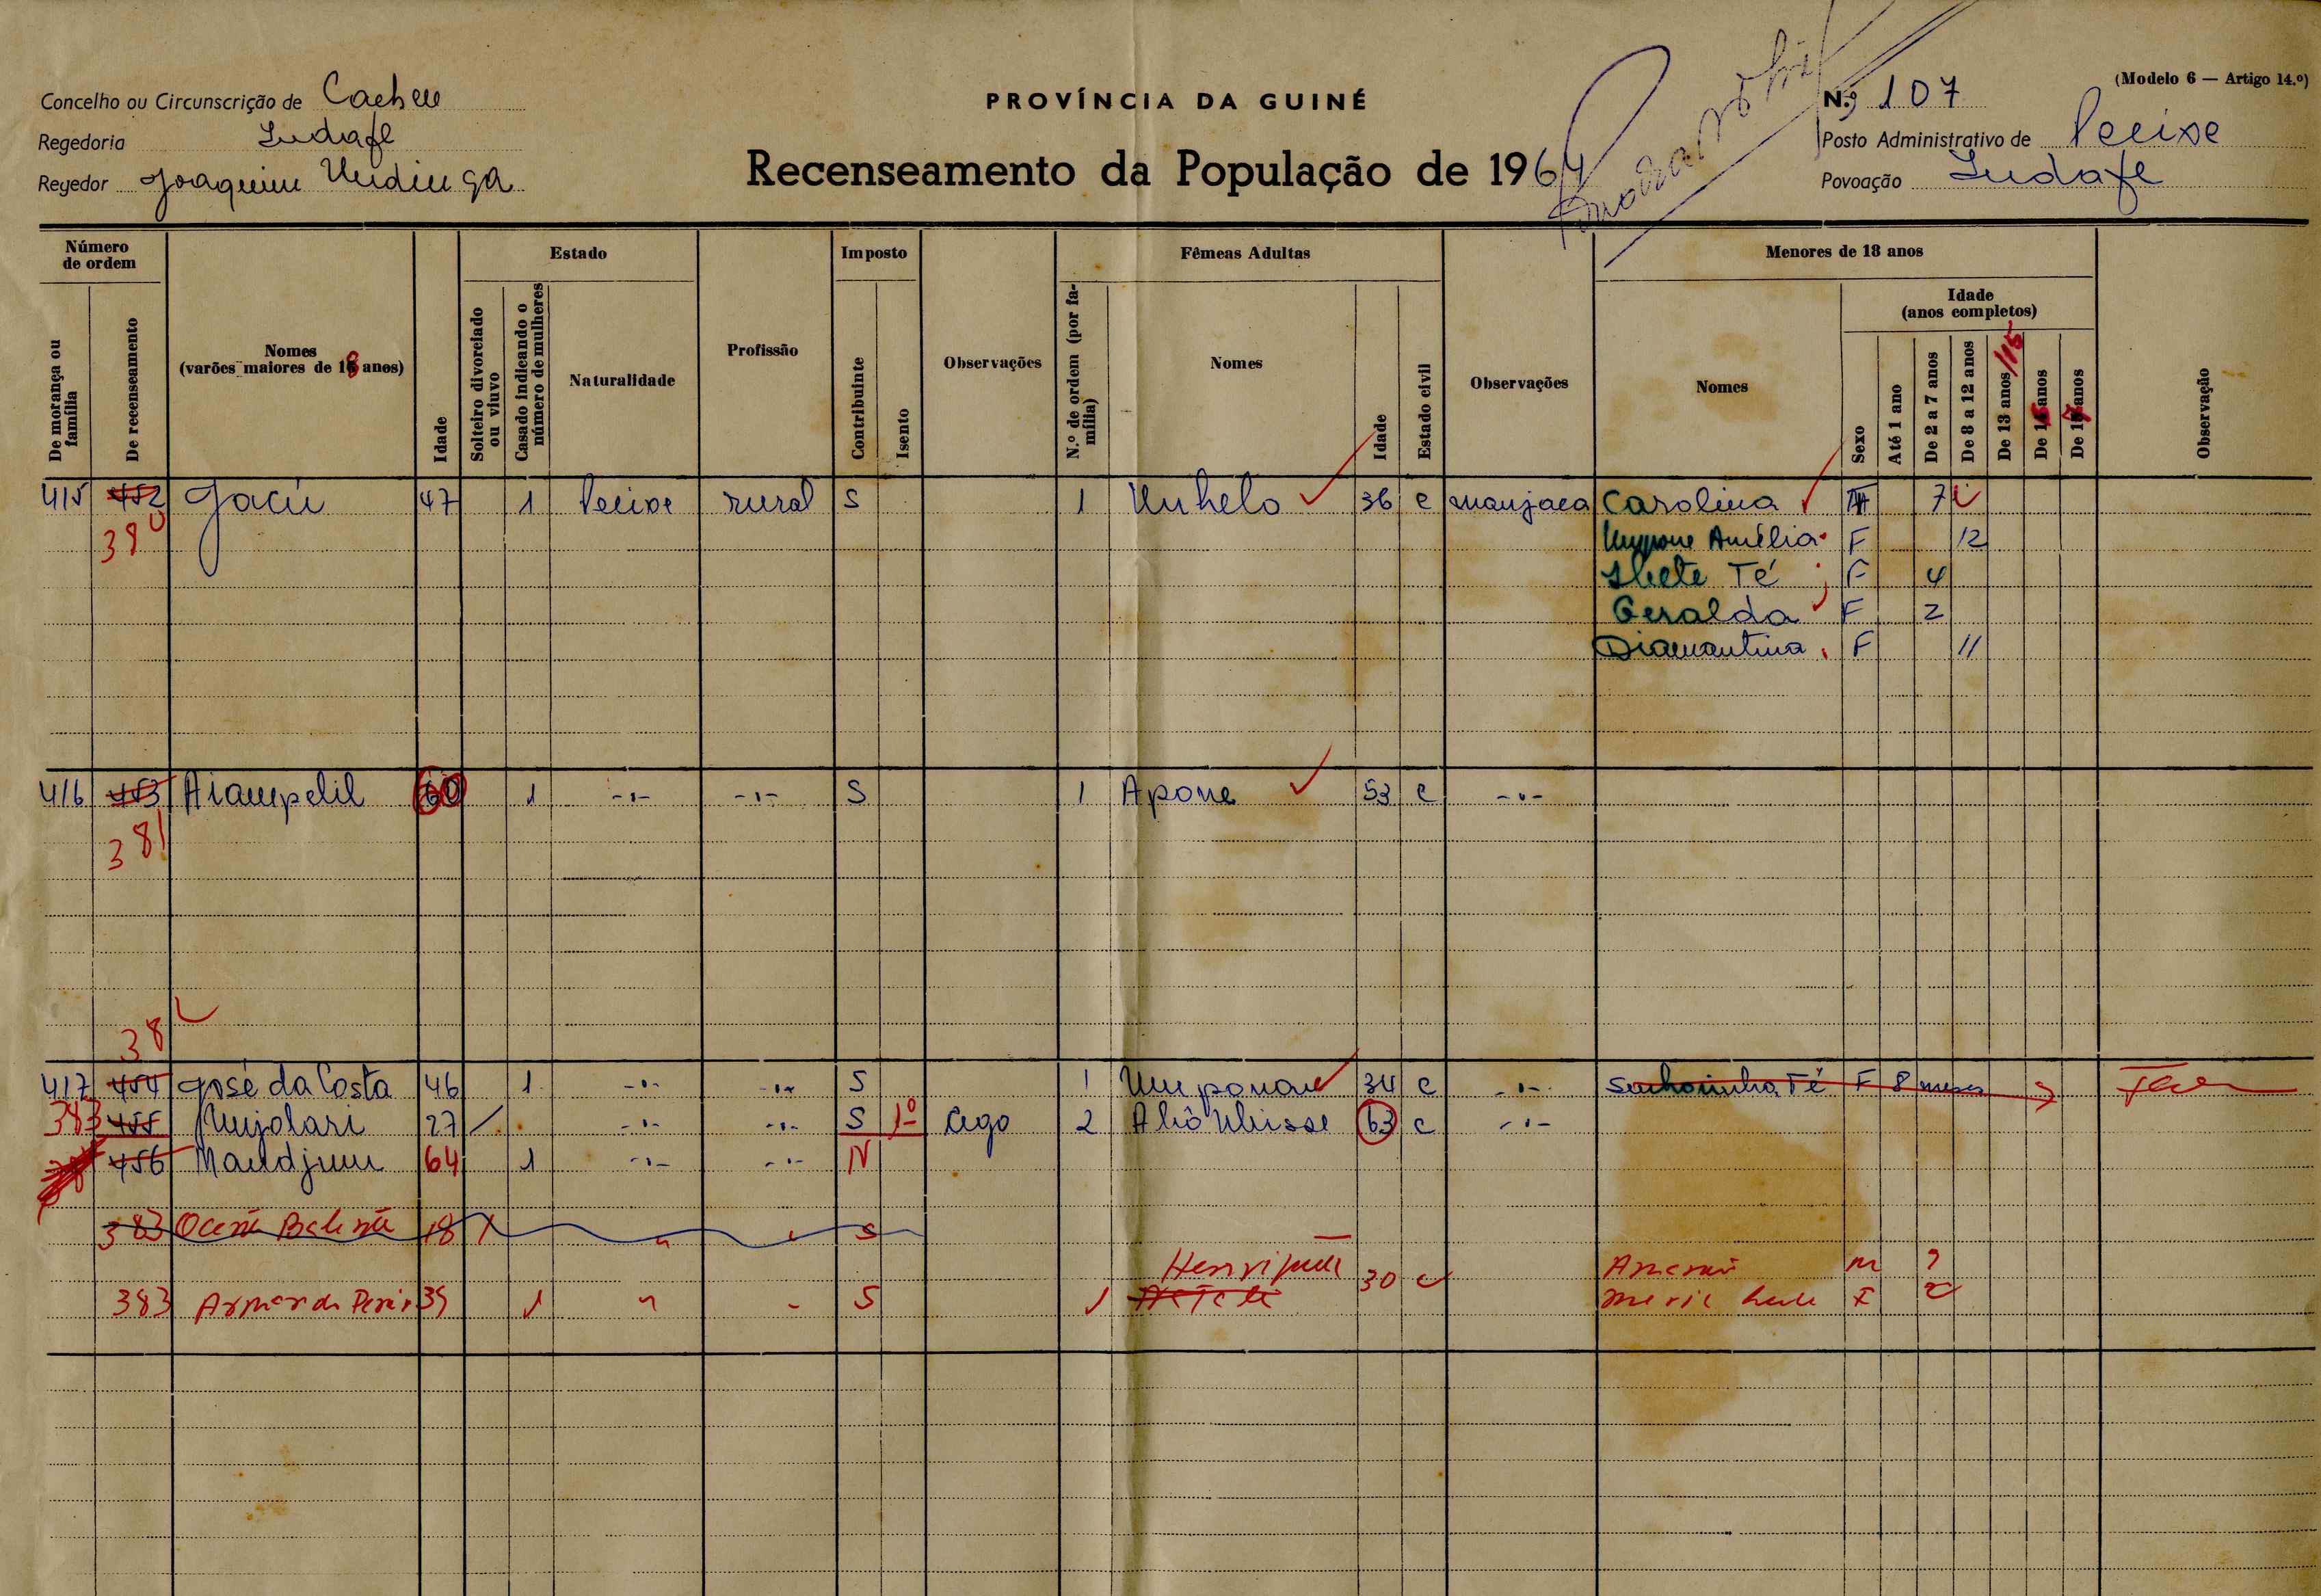 Concelho ou Circunscrição de Cacheu
Regedoria Indafe
Regedor Joaquim Undinga
PROVÍNCIA DA GUINÉ
Recenseamento da População de 1964
(Modelo 6 — Artigo 14.º)
N.º 107
Posto Administrativo de Pecixe
Povoação Indafe
Número de ordem
De morança ou família
De recenseamento
Nomes (varões maiores de 18 anos)
Idade
Estado
Solteiro divorciado ou viuvo
Casado indicando o número de mulheres
Naturalidade
Profissão
Imposto
Contribuinte
Isento
Observações
Fêmeas Adultas
N.º de ordem (por família)
Nomes
Idade
Estado civil
Observações
Menores de 18 anos
Nomes
Sexo
Idade (anos completos)
Até 1 ano
De 2 a 7 anos
De 8 a 12 anos
De 13 anos /15
De anos
De anos
Observação
415 452 Jacú 47 1 Pecixe rural S 1 Unhelo 36 c manjaca Carolina 7
380 Amélia F 12
Té F 4
Geralda F 2
Diamantina F 11
416 453 Aiampelil 60 1 -"- -"- S 1 Apone 53 c -"-
381
38
417 454 José da Costa 46 1 -"- -"- S 1 34 c -"- Té F 8 meses
383 455 Unjolari 27 / -"- -"- S 1º Cego 2 63 c -"-
456 Mandjum 64 1 -"- -"- N
383 18 S
30 c M
383 39 1 " S 1 F 2